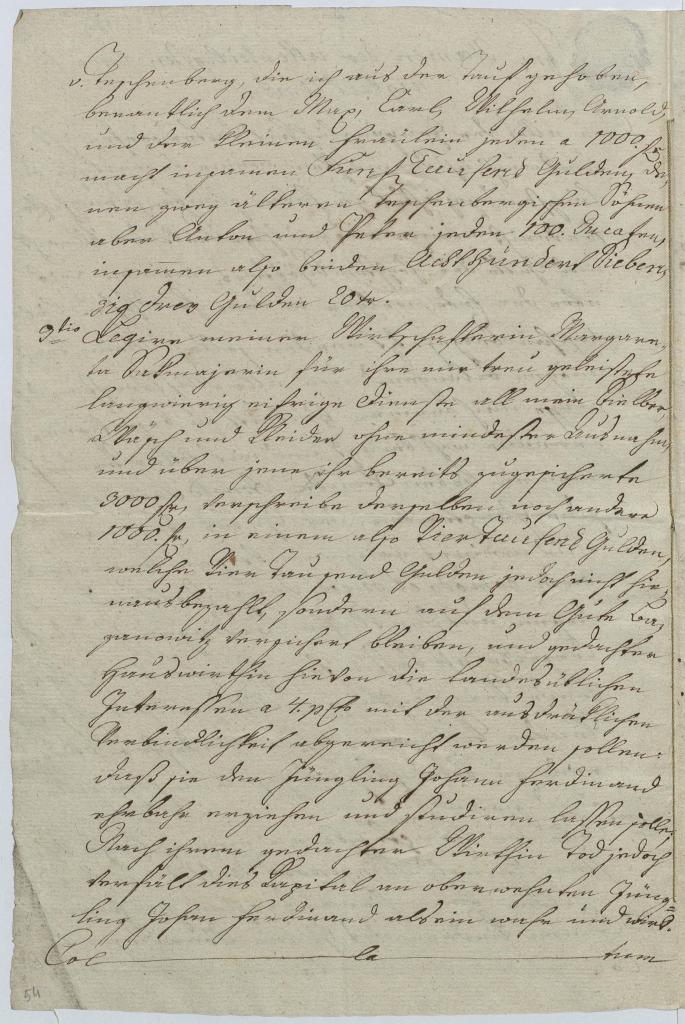 v. Teschenberg, die ich aus der Tauf gehoben,
benantlich dem Max, Carl, Wilhelm, Arnold,
und der kleinen Fräulein jeden a 1000. fr.
macht insammen Fünf Tausend Gulden, de,
nen zwey älteren teschenbergischen Söhnen
aber Anton und Peter jeden 100. Ducaten,
insammen also beiden Achthundert Sieben,
zig drey Gulden 20 xr.
3tio Legire meiner Wirtschafterin Margare,
ta für ihre mir treu geleistete
langwierig eifrige Dienste all mein Silber,
Wäsch und Kleider ohne mindester Ausnahm,
und über jene ihr bereits zugesicherte
3000 fr, verschreibe derselben noch andere
1000. fr, in einem also Vier Tausend Gulden,
welche Vier Tausend Gulden jedoch nicht hin,
nausbezahlt, sondern auf dem Gute Ba,
zanowitz versichert bleiben, und gedachter
Hauswirthin hievon die landesüblichen
Interessen a 4. p Cto mit der ausdrüklichen
Verbindlichkeit abgereicht werden sollen:
daß sie den Jüngling Johann Ferdinand
ehrbahr erziehen und studiren lassen solle,
Nach ihrem gedachter Wirthin Tod jedoch
verfält dies Kapital an oberwehnten Jüng=
ling Johan Ferdinand als ein wahr und
Col la tum
54